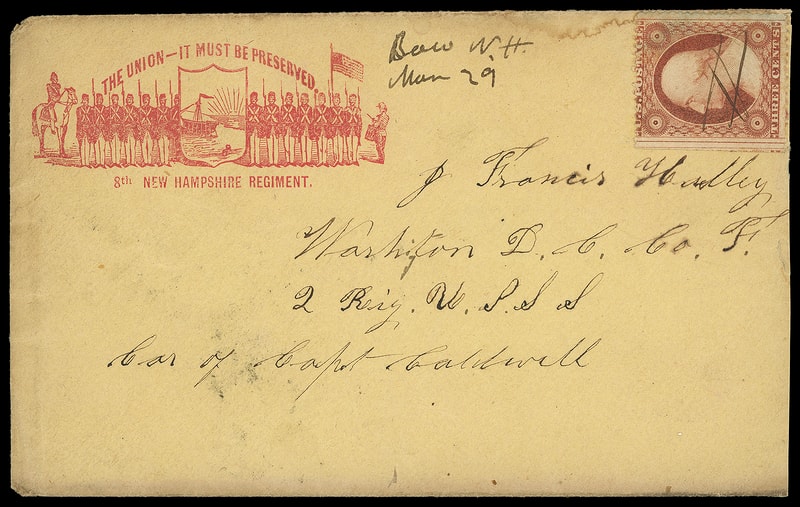 THE UNION—IT MUST BE PRESERVED.
8th NEW HAMPSHIRE REGIMENT.
Bow N.H.
Mar 29
U.S. POSTAGE
THREE CENTS
J Francis Hadley
Washiton D. C. Co. F.
2 Reig. U. S. S S
Car of Capt Caldwell